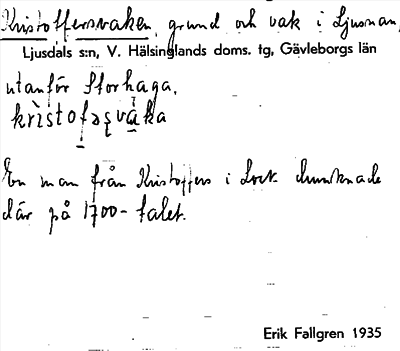 Kristoffersvaken, grund och vak i Ljusnan,
Ljusdals s:n, V. Hälsinglands doms. tg, Gävleborgs län
utanför Storhaga.
krìstofəʂvàka
En man från Kristoffers i Lock drunknade
där på 1700-talet.
Erik Fallgren 1935